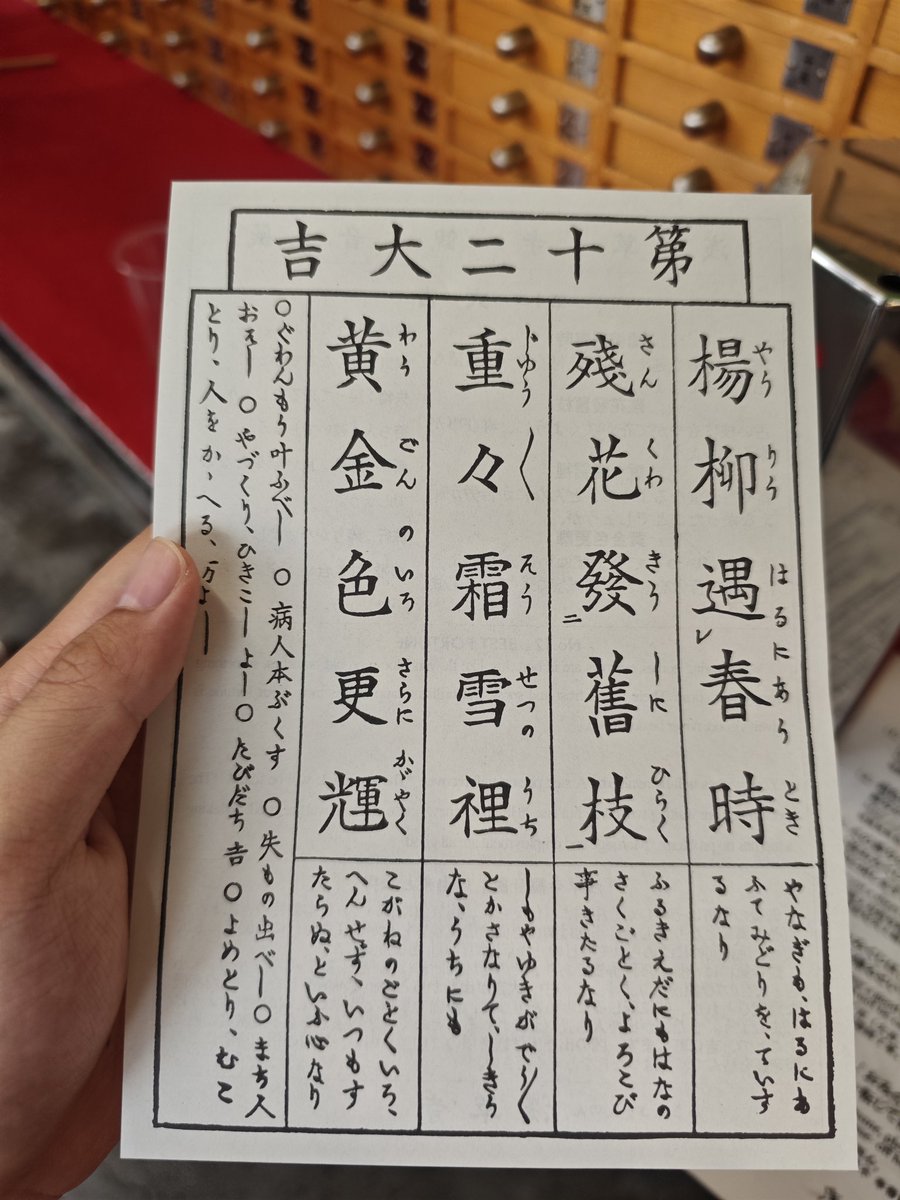 第十二大吉
やうりうはるにあうとき
楊柳遇レ春時
やなぎも、はるにも
ふてみどりを、ていす
るなり
さんくわきうしにひらく
殘花發二舊枝一
ふるきえだにもはなの
さくごとく、よろこび
事きたるなり
じゆう〳〵そうせつのうち
重々霜雪裡
しもやゆきがぢう〳〵
とかさなりて、しきう
な、うちにも
わうごんのいろさらにかゞやく
黄金色更輝
こがねのごとくいろ、
へんせず、いつもす
たらぬ、といふ心なり
〇ぐわんもう叶ふべし 〇病人本ぶくす 〇失もの出べし〇まち人
おそし 〇やづくり、ひきこし よし〇たびだち吉 〇よめとり、むこ
とり、人をかゝへる、万よし